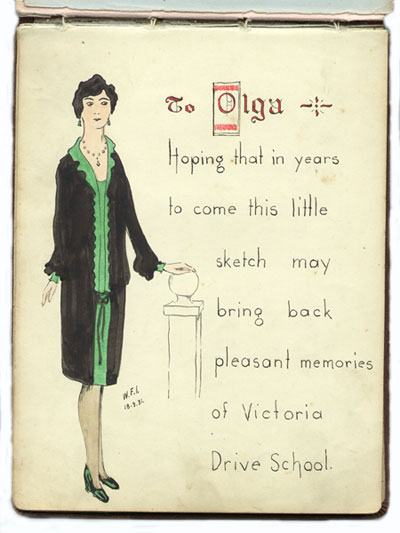 To Olga
Hoping that in years
to come this little
sketch may
bring back
pleasant memories
of Victoria
Drive School.
W.F.L.